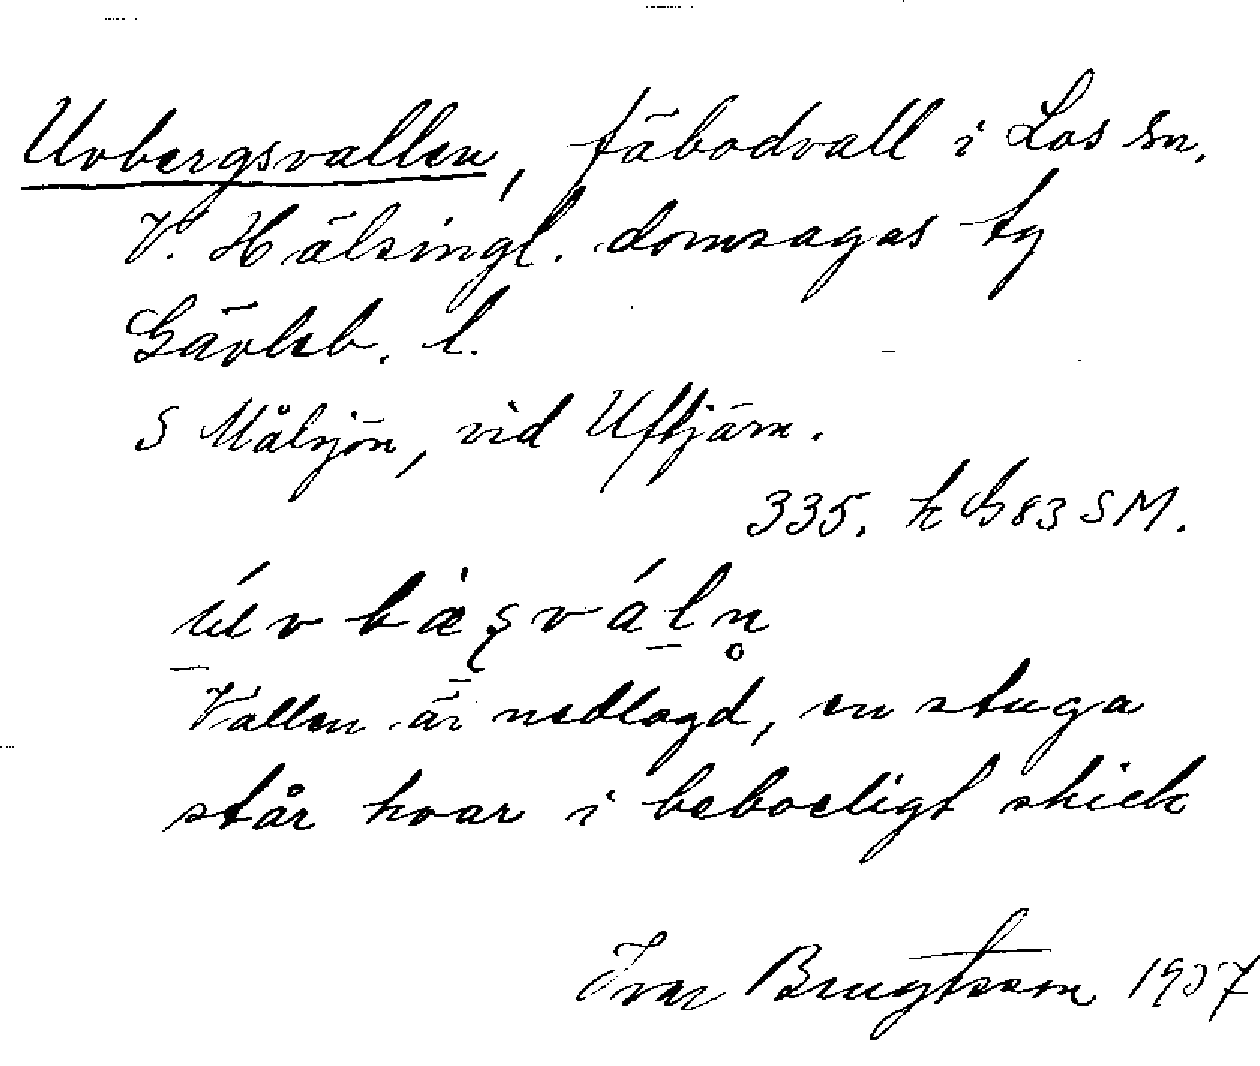 Uvbergsvallen, fäbodvall i Los sn.
V. Hälsingl. domsagas tg
Gävleb. l.
S Målsjön, vid Uftjärn.
335. h G83 SM.
Vallen är nedlagd, en stuga
står kvar i beboeligt skick
Ivar Bengtsson 1937